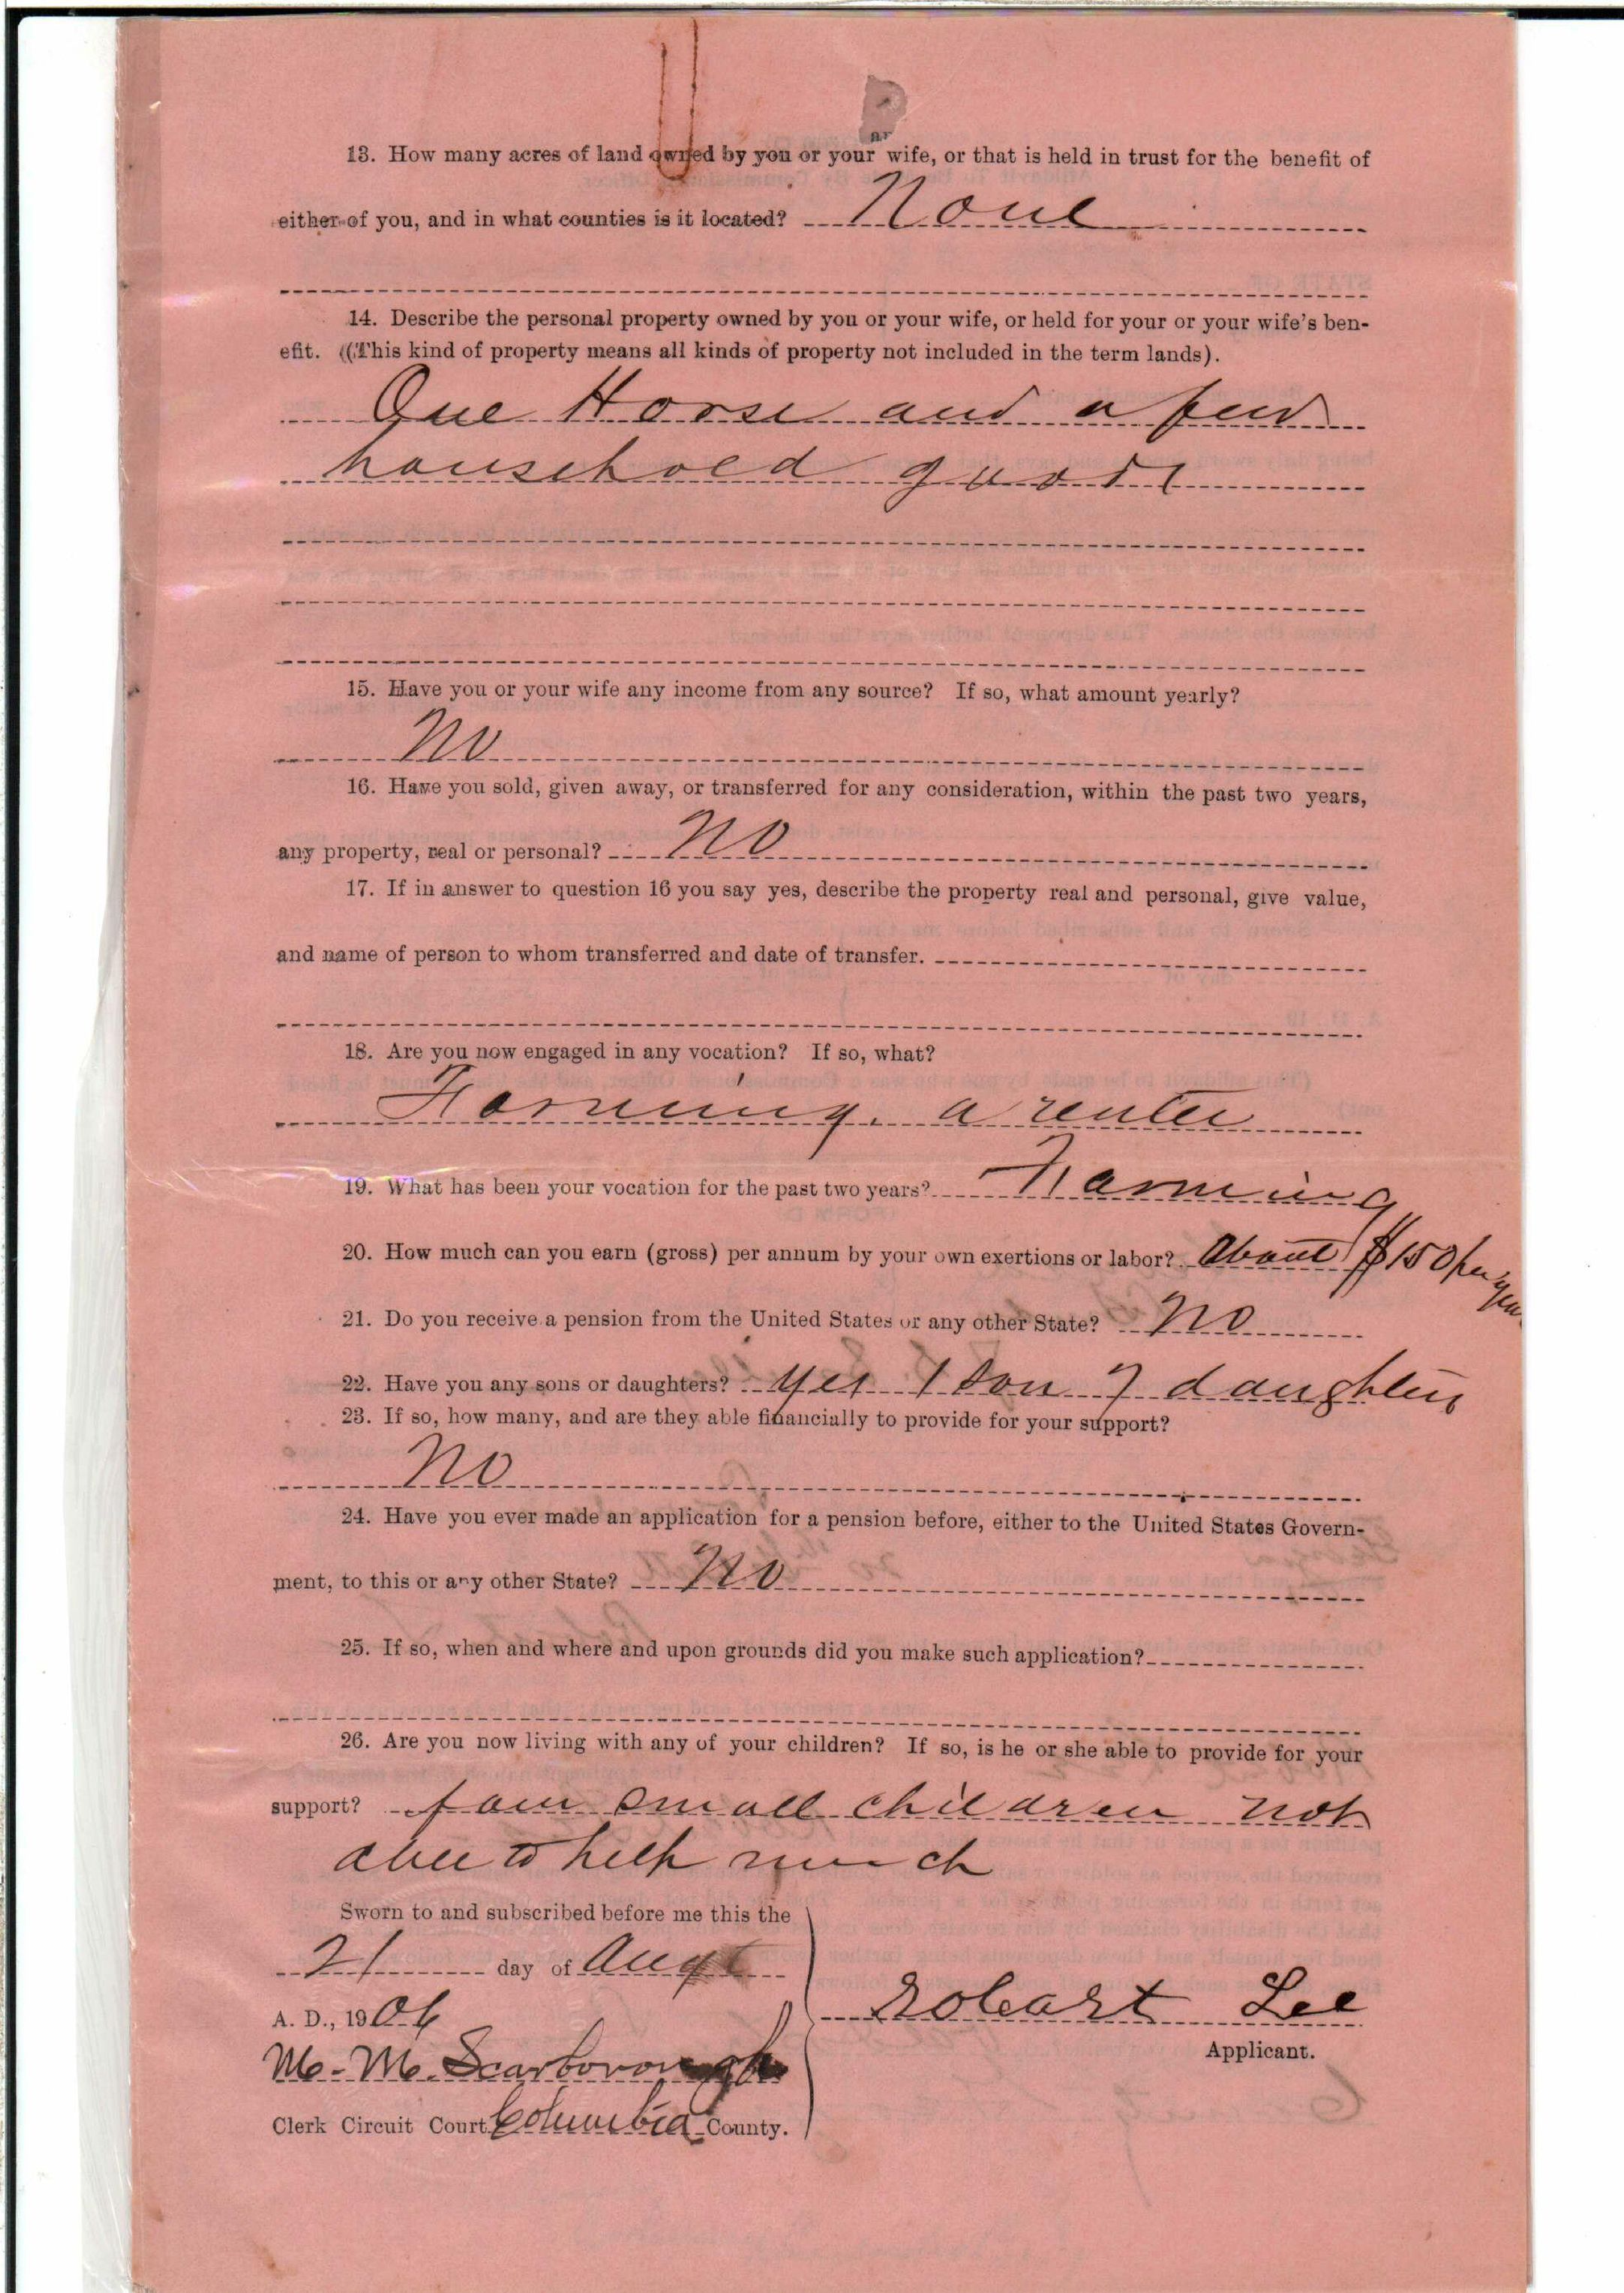 13. How many acres of land owned by you or your wife, or that is held in trust for the benefit of
either of you, and in what counties is it located? None
14. Describe the personal property owned by you or your wife, or held for your or your wife's ben-
efit. ((This kind of property means all kinds of property not included in the term lands).
One Horse and a few
household goods
15. Have you or your wife any income from any source? If so, what amount yearly?
No
16. Have you sold, given away, or transferred for any consideration, within the past two years,
any property, real or personal? No
17. If in answer to question 16 you say yes, describe the property real and personal, give value,
and name of person to whom transferred and date of transfer.
18. Are you now engaged in any vocation? If so, what?
Farming. a renter
19. What has been your vocation for the past two years? Farming
20. How much can you earn (gross) per annum by your own exertions or labor? About $150 per year
21. Do you receive a pension from the United States or any other State? No
22. Have you any sons or daughters? Yes 1 son 7 daughters
23. If so, how many, and are they able financially to provide for your support?
No
24. Have you ever made an application for a pension before, either to the United States Govern-
ment, to this or any other State? No
25. If so, when and where and upon grounds did you make such application?
26. Are you now living with any of your children? If so, is he or she able to provide for your
support? four small children not
able to help much
Sworn to and subscribed before me this the
21 day of Augt
A. D., 1906
Robart Lee
Applicant.
M. M. Scarborough
Clerk Circuit Court Columbia County.